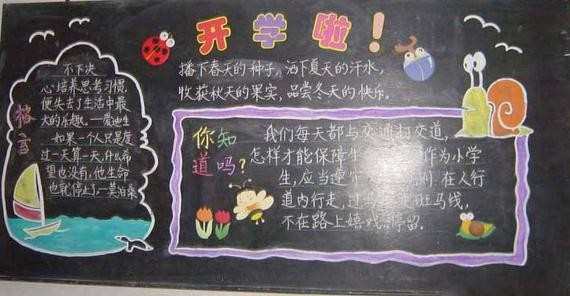 开学啦！
播下春天的种子，洒下夏天的汗水，
收获秋天的果实，品尝冬天的快乐。
格言
不下决
心培养思考习惯，
便失去了生活中最
大的乐趣。—爱迪生
如果一个人只是度
过一天算一天，什么希
望也没有，他生命
也就停止了—莫泊桑
你知
道吗？
我们每天都与交通打交道，
怎样才能保障生 作为小学
生，应当遵守 在人行
道内行走，过 斑马线，
不在路上嬉戏、停留。